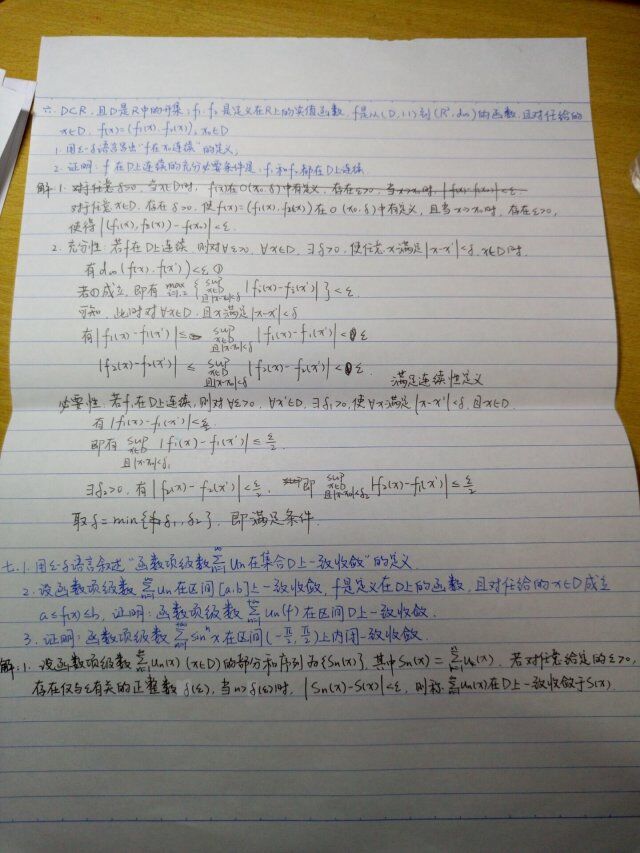 六. D⊂R, 且D是R中的开集, f₁, f₂ 是定义在R上的实值函数, f是从(D, |·|)到(R², d∞)的函数, 且对任给的
x∈D, f(x)=(f₁(x), f₂(x)), x₀∈D
1. 用ε-δ语言写出"f在x₀连续"的定义,
2. 证明: f 在D上连续的充分必要条件是, f₁和f₂都在D上连续.
解 1. 对于任意δ>0, 当x∈D时, f(x)在O(x₀,δ)中有定义, 存在ε>0, 当x→x₀时, |f(x)-f(x₀)|<ε.
对于任意x∈D, 存在δ>0, 使f(x)=(f₁(x), f₂(x))在O(x₀,δ)中有定义, 且当x→x₀时, 存在ε>0,
使得|(f₁(x), f₂(x))-f(x₀)|<ε.
2. 充分性: 若f在D上连续, 则对∀ε>0, ∀x'∈D, ∃δ>0, 使任意x满足|x-x'|<δ, x∈D时,
有d∞(f(x), f(x'))<ε ①
若①成立, 即有 max i=1,2 { sup x∈D 且|x-x₀|<δ |fᵢ(x)-fᵢ(x')| } <ε
可知, 此时对∀x∈D, 且x满足|x-x'|<δ
有|f₁(x)-f₁(x')| ≤ sup x∈D 且|x-x₀|<δ |f₁(x)-f₁(x')| < ε
|f₂(x)-f₂(x')| ≤ sup x∈D 且|x-x₀|<δ |f₂(x)-f₂(x')| < ε
满足连续性定义
必要性: 若f₁在D上连续, 则对∀ε>0, ∀x'∈D, ∃δ₁>0, 使∀x满足|x-x'|<δ, 且x∈D.
有|f₁(x)-f₁(x')|<ε/2
即有 sup x∈D 且|x-x₀|<δ₁ |f₁(x)-f₁(x')| ≤ ε/2
∃δ₂>0, 有|f₂(x)-f₂(x')|<ε/2, 即 sup x∈D 且|x-x₀|<δ₂ |f₁(x)-f₁(x')| ≤ ε/2
取δ=min{δ₁, δ₂}, 即满足条件.
七. 1. 用ε-δ语言叙述"函数项级数∑uₙ在集合D上一致收敛"的定义
2. 设函数项级数∑uₙ在区间[a,b]上一致收敛, f是定义在D上的函数, 且对任给的x∈D成立
a≤f(x)≤b, 证明: 函数项级数∑uₙ(f)在区间D上一致收敛.
3. 证明: 函数项级数∑sinⁿx在区间(-π/2, π/2)上内闭一致收敛.
解: 1. 设函数项级数∑uₙ(x) (x∈D)的部分和序列为{Sn(x)}, 其中Sn(x)=∑uₖ(x). 若对任意给定的ε>0,
存在仅与ε有关的正整数δ(ε), 当n>δ(ε)时, |Sn(x)-S(x)|<ε, 则称∑uₙ(x)在D上一致收敛于S(x).